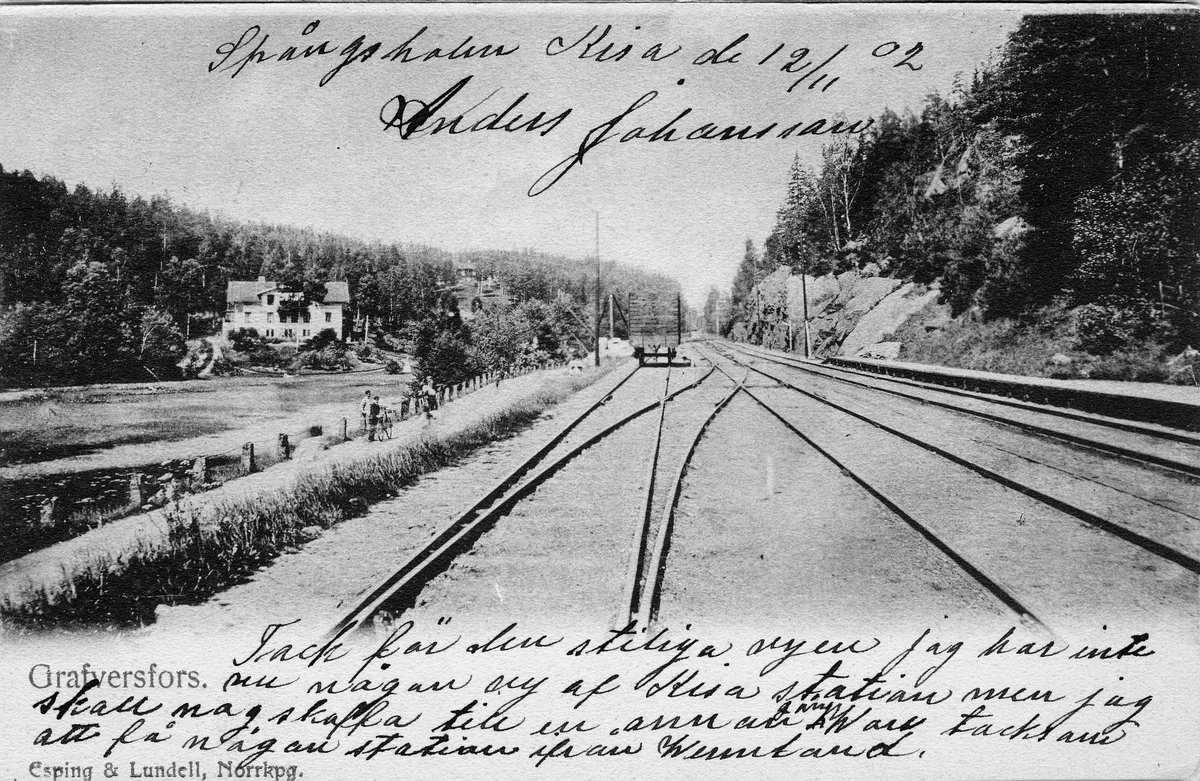 Spångsholm Kisa de 12/11 02
Anders Johansson
Tack för den stiliga vyen jag har inte
Grafversfors.
nu någon vy af Kisa station men jag
skall nog skaffa till en annan gång Wore tacksam
att få någon station ifrån Wermland.
Esping & Lundell, Norrkpg.